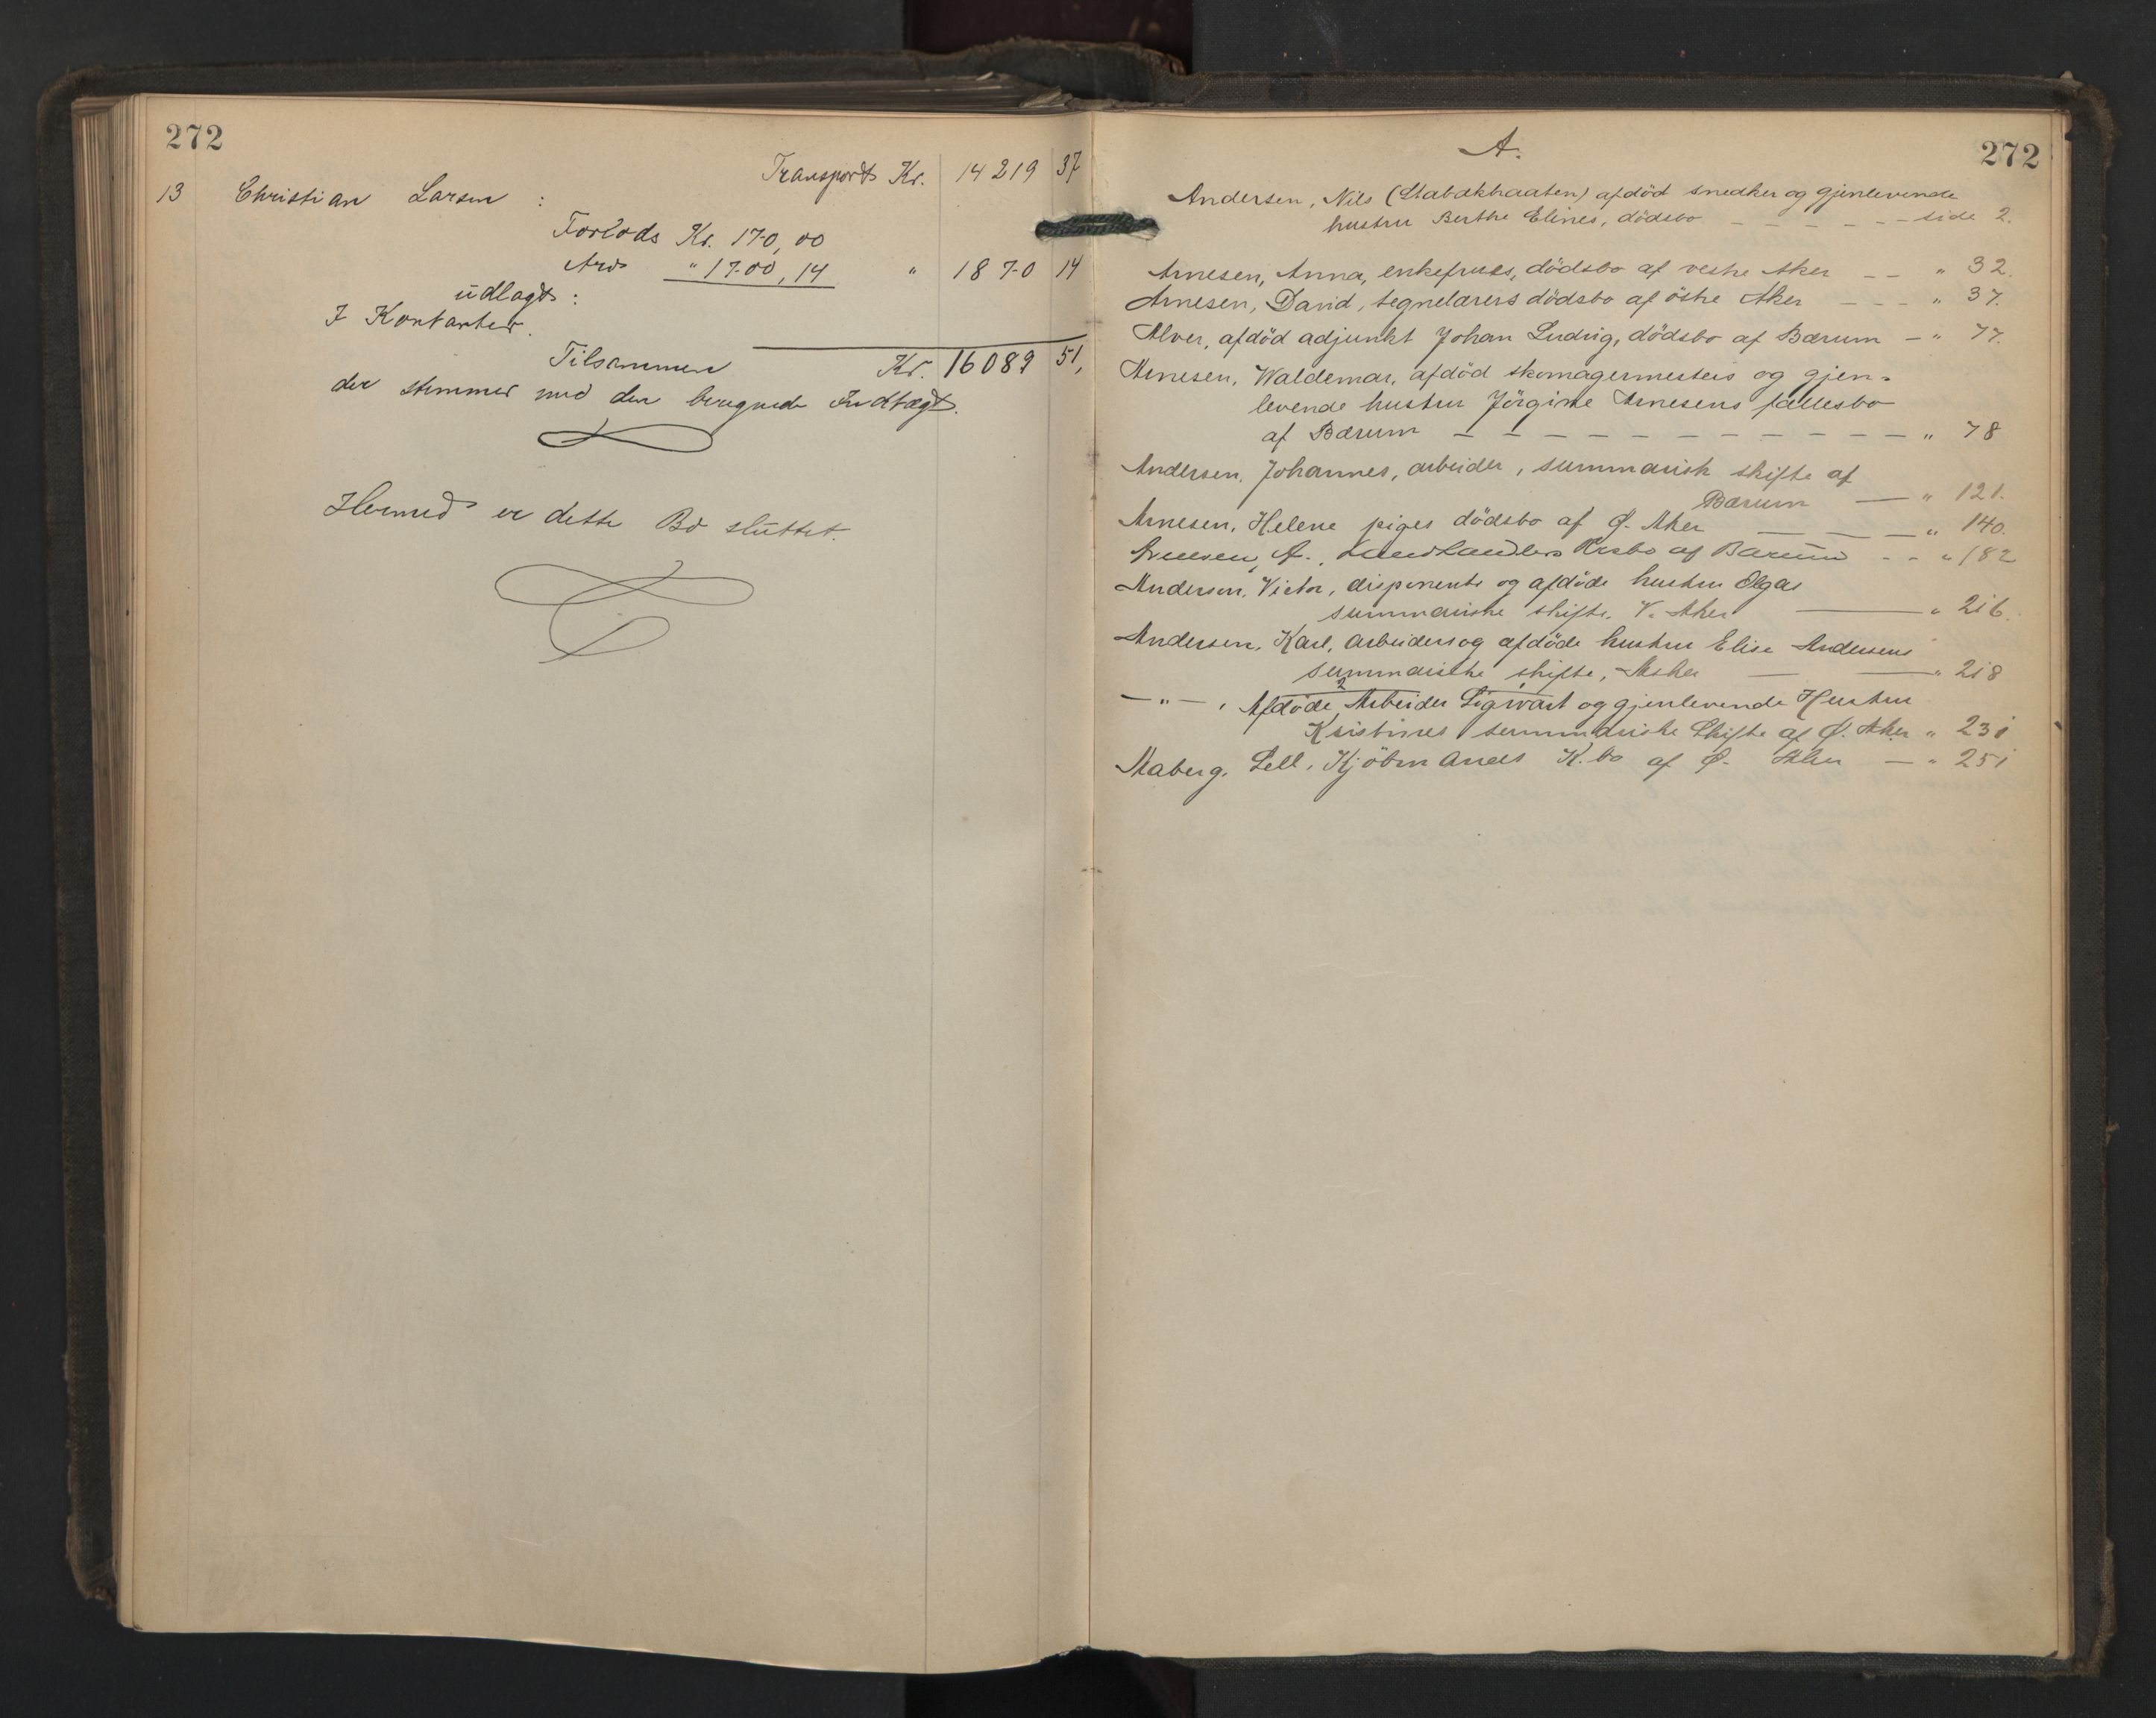 272
Transport Kr. 14219 37
13 Christian Larsen :
Forlods Kr. 170,00
Arv " 1700,14 " 1870 14
udlagt :
I Kontanter.
Tilsammen Kr. 16089 51,
der stemmer med den beregnede Indtægt.
Hermed er dette Bo sluttet.
A.
272
Andersen, Nils (Stabækbraaten) afdöd snedker og gjenlevende
hustru Berthe Elines, dödsbo – – – – – – side 2.
Arnesen, Anna, enkefrues, dödsbo af vestre Aker – – " 32.
Arnesen, David, tegnelærers dödsbo af östre Aker – – – " 37.
Alver, afdöd adjunkt Johan Ludvig, dödsbo af Bærum – " 77.
Arnesen, Waldemar, afdöd skomagermesters og gjen-
levende hustru Jörgine Arnesens fællesbo
af Bærum – – – – – – – – – – – " 78
Andersen, Johannes, arbeider, summarisk skifte af
Bærum — " 121.
Arnesen, Helene piges dödsbo af Ø. Aker — — — " 140.
A., Landhandlers af Bærum - - " 182
Andersen, Victor, disponents og afdöde hustru Olgas
summariske skifte. V. Aker — " 216.
Andersen, Karl, arbeiders og afdöde hustru Elise Andersens
summariske skifte, Asker — — " 218
— " — , Afdöde Arbeider Sigvart og gjenlevende Hustru
Kristines summariske Skifte af Ø. Aker " 231
Aaberg, Sell, Kjöbmands K.bo af Ø. Aker — " 251